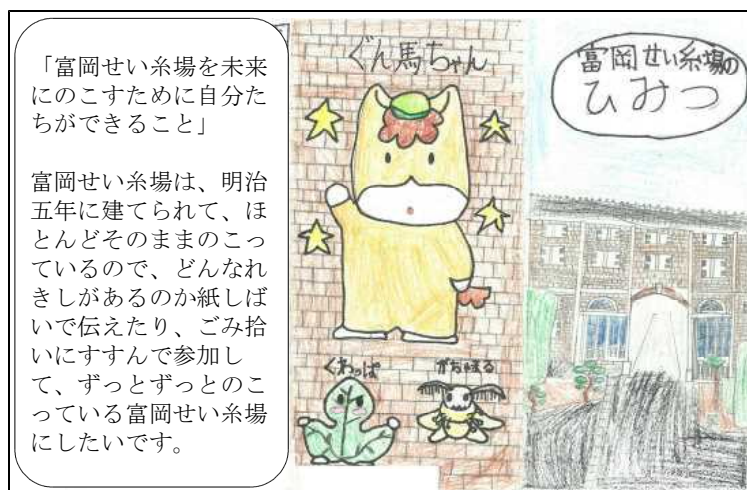 「富岡せい糸場を未来
にのこすために自分た
ちができること」
富岡せい糸場は、明治
五年に建てられて、ほ
とんどそのままのこっ
ているので、どんなれ
きしがあるのか紙しば
いで伝えたり、ごみ拾
いにすすんで参加し
て、ずっとずっとのこ
っている富岡せい糸場
にしたいです。
ぐん馬ちゃん
くわっぱ
がち峰る
富岡せい糸場の
ひみつ